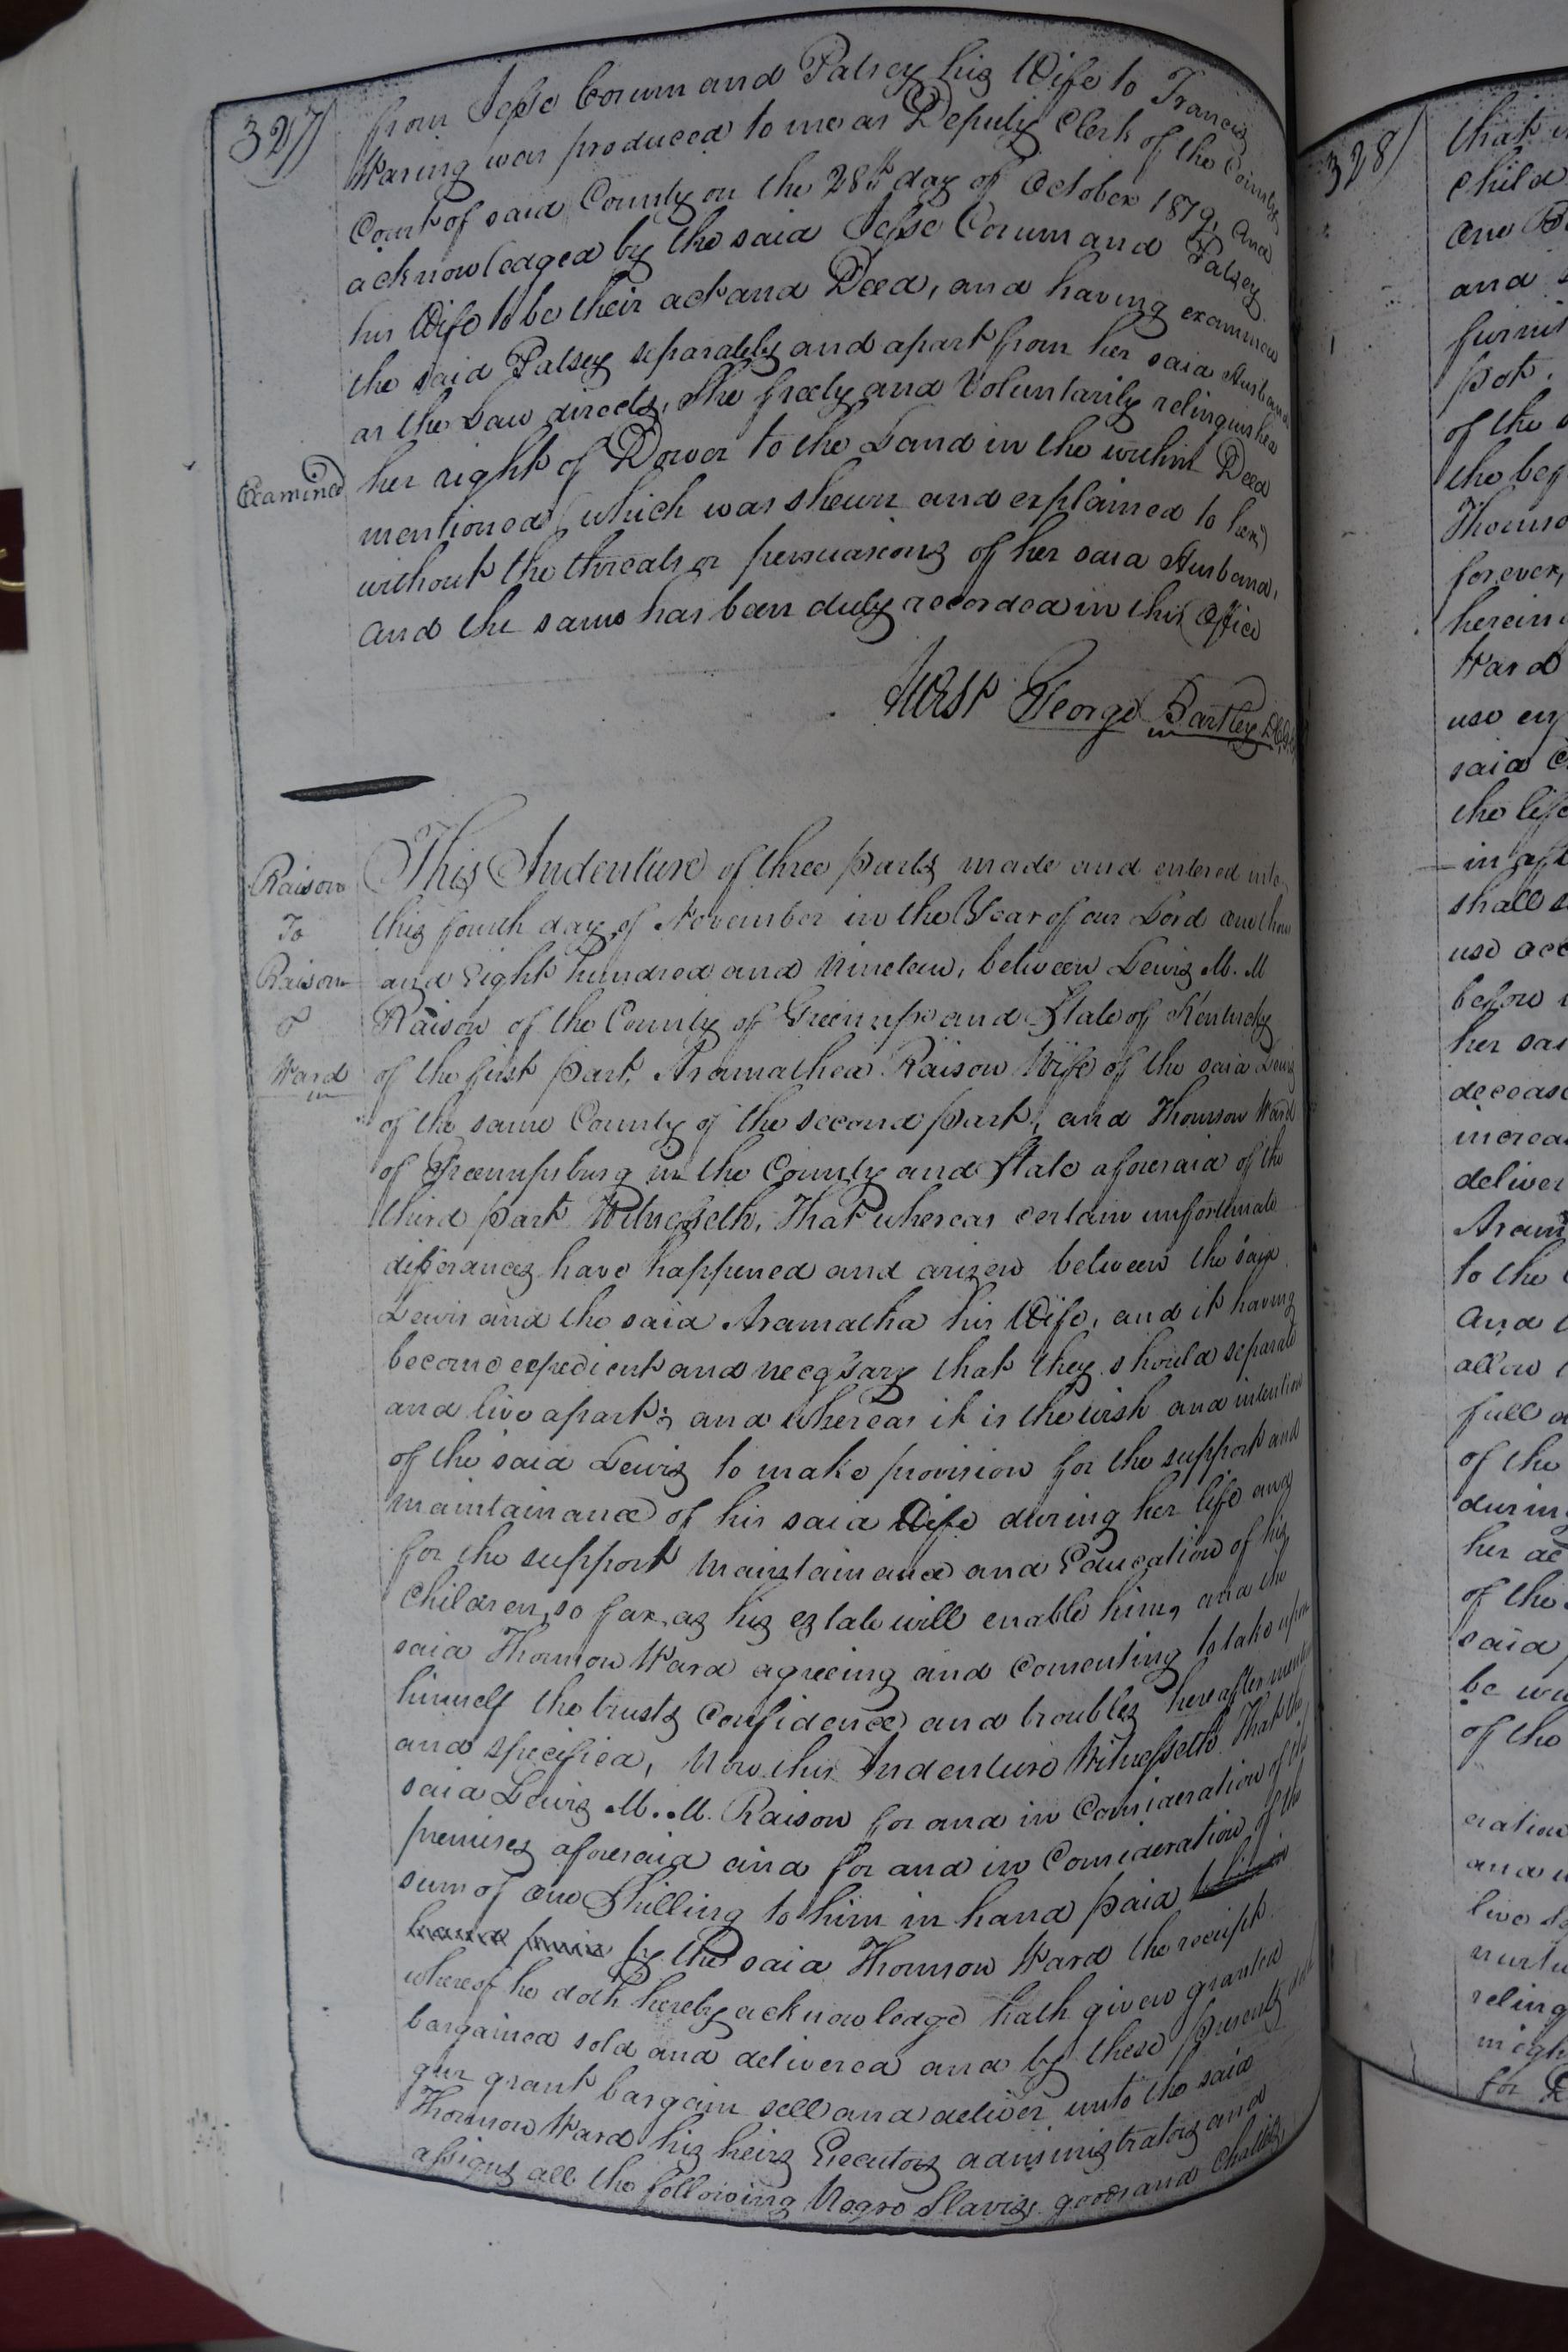 327
from Jesse Corum and Patsey his Wife to Francis
Waring was produced to me as Deputy Clerk of the County
Court of said County on the 28th day of October 1819, and
acknowledged by the said Jesse Corum and Patsey
his Wife to be their act and Deed, and having examined
the said Patsey separately and apart from her said Husband
as the Law directs, She freely and Voluntarily relinquished
her right of Dower to the Land in the within Deed
Examined
mentioned (which was shewn and explained to her)
without the threats or persuasions of her said Husband,
and the same has been duly recorded in this Office
Test George Bartley
Raison
To
Raison
&
Ward
This Indenture of three parts made and entered into
this fourth day of November in the Year of our Lord one thou
and Eight hundred and Nineteen, between Lewis M. M
Raison of the County of Greenup and State of Kentucky
of the first part, Aramathea Raison Wife of the said Lewis
of the same County of the second part, and Thomson Ward
of Greenupsburg in the County and State aforesaid of the
third part Witnesseth, That whereas certain unfortunate
differances have happened and arizen between the said
Lewis and the said Aramatha his Wife, and it having
become expedient and necessary that they should separate
and live apart; and whereas it is the wish and intention
of the said Lewis to make provision for the support and
maintainance of his said Wife during her life and
for the support Maintainance and Education of his
Children, so far as his estate will enable him, and the
said Thomson Ward agreeing and Consenting to take upon
himself the trusts Confidence and troubles hereafter
and specified, Now this Indenture Witnesseth That the
said Lewis M. M. Raison for and in Consideration of the
premises aforesaid and for and in Consideration of the
sum of one Shilling to him in hand paid
hand paid by the said Thomson Ward the receipt
whereof he doth hereby acknowledge hath given granted
bargained sold and delivered and by these presents doth
give grant bargain sell and deliver unto the said
Thomson Ward his heirs Executors administrators and
assigns all the following Negro Slaves, goods and Chattles
328
that
Child
One
and
furni
pot.
of the
the beg
Thomso
forever,
herein
Ward
use
said
the life
in aft
shall s
use
before
her sai
deceas
increa
deliver
Aram
to the
And
allow
full
of the
during
her
of the
said
be
of the
eration
and
live
nurtu
relinq
migh
for